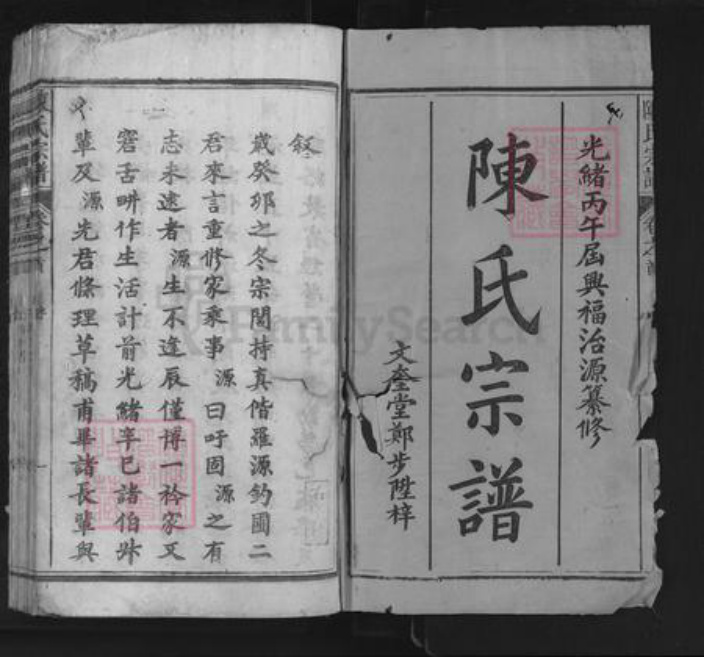 光緒丙午屆興福治源纂修
陳氏宗譜
文奎堂鄭步陞梓
敘
歲癸卯之冬宗閣持真偕羅源鈞圃二
君來言重修家乘事源曰吁固源之有
志未逮者源生不逢辰僅博一衿家又
窘舌畊作生活計前光緒辛巳諸伯叔
輩及源先君條理草稿甫畢諸長輩與
FamilySearch